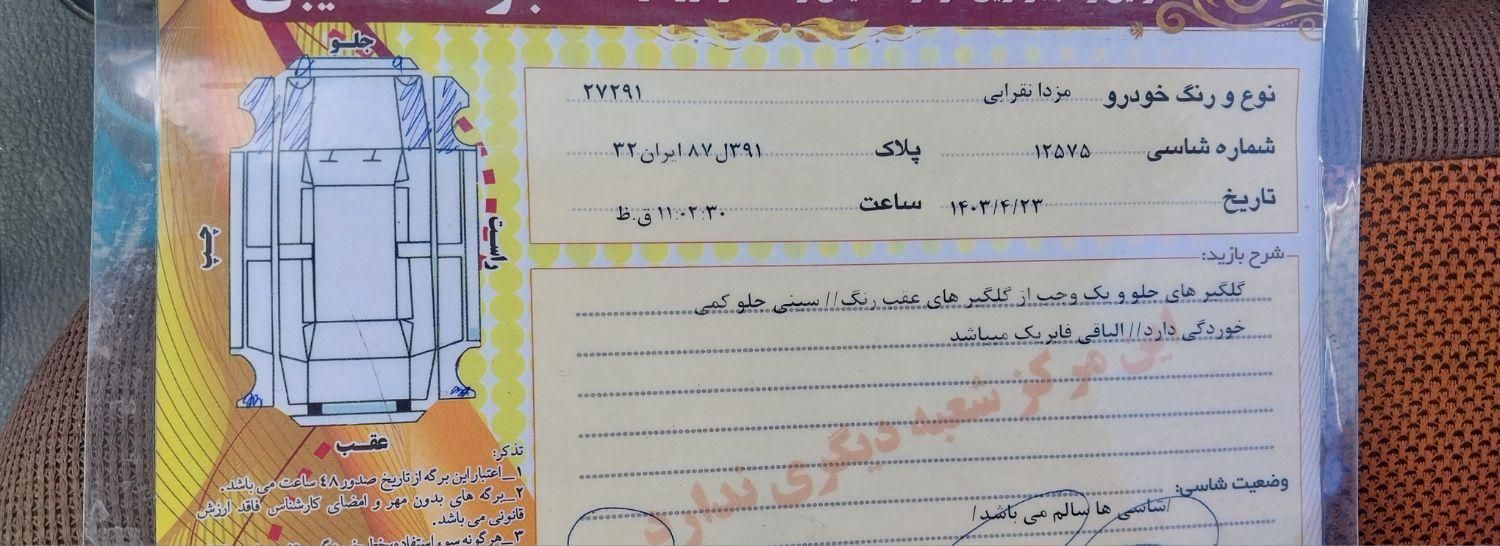 جلو
چپ
راست
عقب
نوع و رنگ خودرو مزدا نقرابی ۲۷۲۹۱
شماره شاسی ۱۲۵۷۵ پلاک ۳۹۱ل۸۷ ایران ۳۲
تاریخ ۱۴۰۳/۴/۲۳ ساعت ۱۱:۰۲:۳۰ ق.ظ
شرح بازید:
گلگیر های جلو و یک وجب از گلگیر های عقب رنگ// سینی جلو کمی
خوردگی دارد// الباقی فابریک میباشد
این مرکز شعبه دیگری ندارد
وضعیت شاسی:
/شاسی ها سالم می باشد/
تذکر:
۱_اعتبار این برگه از تاریخ صدور ۴۸ ساعت می باشد.
۲_برگه های بدون مهر و امضای کارشناس فاقد ارزش
قانونی می باشد.
۳_هرگونه سوء استفاده